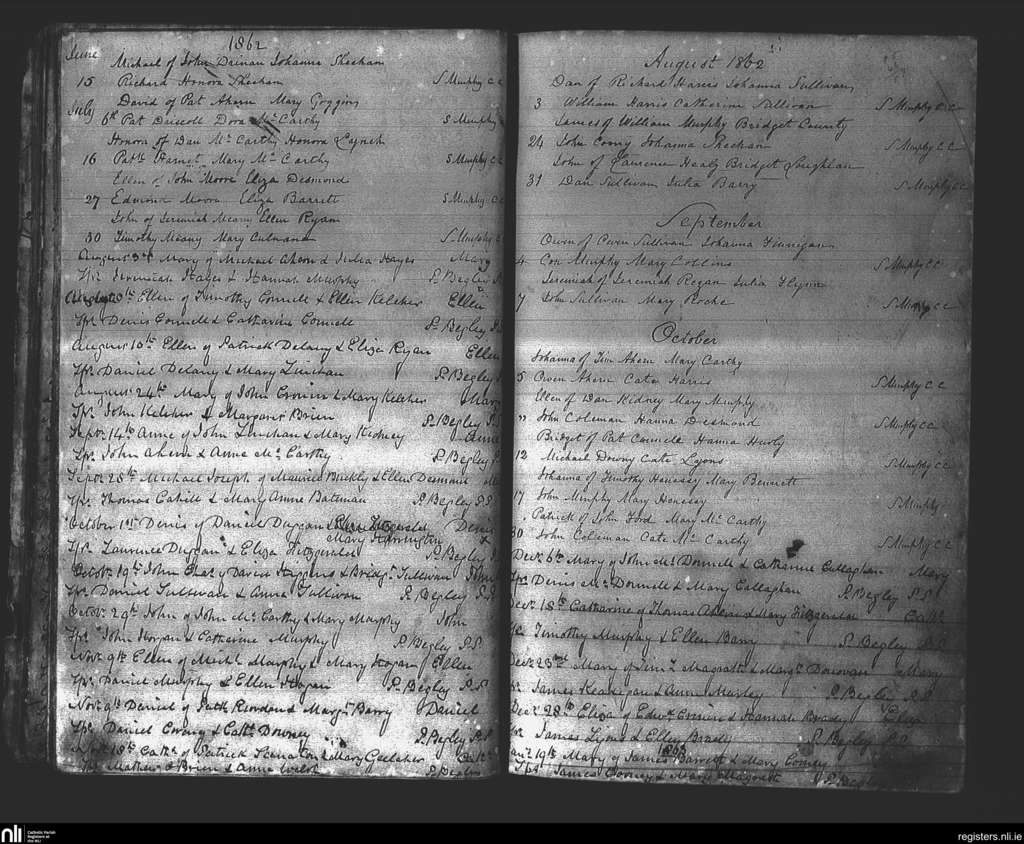 1862
June
Michael of John Drinan Johanna Sheehan
15 Richard Honora Sheehan S Murphy C C
July David of Pat Ahern Mary Goggins
6th Pat Driscoll Dora McCarthy S Murphy
Honora of Dan McCarthy Honora Lynch
16 Patk Harnet Mary McCarthy S Murphy CC
Ellen of John Moore Eliza Desmond
27 Edmond Moore Eliza Barrett S Murphy CC
John of Jeremiah Meany Ellen Ryan
30 Timothy Meany Mary S Murphy C
August 3rd Mary of Michael Ahern & Julia Hayes Mary
Sprs Jeremiah Hayes & Hannah Murphy P. Begley P
August 10th Ellen of Timothy Connell & Ellen Kelcher Ellen
Sprs Denis Connell & Catharine Connell P. Begley P.
August 10th Ellen of Patrick Delany & Eliza Ryan Ellen
Sprs Daniel Delany & Mary Linehan P. Begley
August 24th Mary of John Cronin & Mary Kelcher Mary
Sprs John Kelcher & Margaret Brien P. Begley P.
Septr 14th Anne of John Linehan & Mary Kidney Anne
Sprs John Ahern & Anne McCarthy P. Begley P
Septr 28th Michael Joseph of Maurice Buckley & Ellen Desmond
Sprs Thomas Cahill & Mary Anne Bateman P. Begley P.P.
October 1st Denis of Daniel Duggan & Denis
Mary Harrington
Sprs Laurence Duggan & Eliza Fitzgerald P. Begley P
Octobr 19th John of David Higgins & Bridgt Sullivan John
Sprs Daniel Sullivan & Anne Sullivan P. Begley P.P.
Octobr 29th John of John McCarthy & Mary Murphy John
Sprs John Horgan & Catherine Murphy P. Begley P.P.
Novr 9th Ellen of Michl Murphy & Mary Hogan Ellen
Sprs Daniel Murphy & Ellen Hogan P. Begley P.P.
Novr 9th Daniel of Patk Riordan & Margt Barry Daniel
Sprs Daniel & Cathe Downey P. Begley P.P.
18th Cathe of Patrick & Mary Cathe
Sprs Mathew O'Brien & Anne Walsh P. Begley
August 1862
Dan of Richard Harris Johanna Sullivan
3 William Harris Catherine Sullivan S Murphy C C
James of William Murphy Bridget County
24 John Coony Johanna Sheehan S Murphy C C
John of Laurence Healy Bridget Loughlan
31 Dan Sullivan Julia Barry S Murphy C C
September
Owen of Owen Sullivan Johanna Finnegan
4 Con Murphy Mary Collins S Murphy C C
Jeremiah of Jeremiah Regan Julia Flynn
7 John Sullivan Mary Roche S Murphy C C
October
Johanna of Tim Ahern Mary Carthy
5 Owen Ahern Cate Harris S Murphy C C
Ellen of Dan Kidney Mary Murphy
" John Coleman Hanna Desmond S Murphy C C
Bridget of Pat Connell Hanna Hurly
12 Michael Downy Cate Lyons S Murphy C C
Johanna of Timothy Henessy Mary Bennett
17 John Murphy Mary Henessy S Murphy
Patrick of John Ford Mary McCarthy
30 John Coleman Cate McCarthy S Murphy C C
Decr 6th Mary of John McDonnell & Catharine Callaghan Mary
Sprs Denis McDonnell & Mary Callaghan P. Begley P.P.
Decr 18th Catharine of Thomas Ahern & Mary Fitzgerald Cathe
Sprs Timothy Murphy & Ellen Barry P. Begley P.P.
Decr 23rd Mary of Magrath & Margt Donovan Mary
Sprs James & Anne P. Begley P.P.
Decr 28th Eliza of Edwd Cronin & Hannah Brady Eliza
Sprs James Lyons & Ellen Brady P. Begley P.P.
1863
Janr 19th Mary of James Barrett & Mary Cooney
Sprs James Cooney & Mary Magrath P. Begley
nli
Catholic Parish
Registers at
the NLI
registers.nli.ie